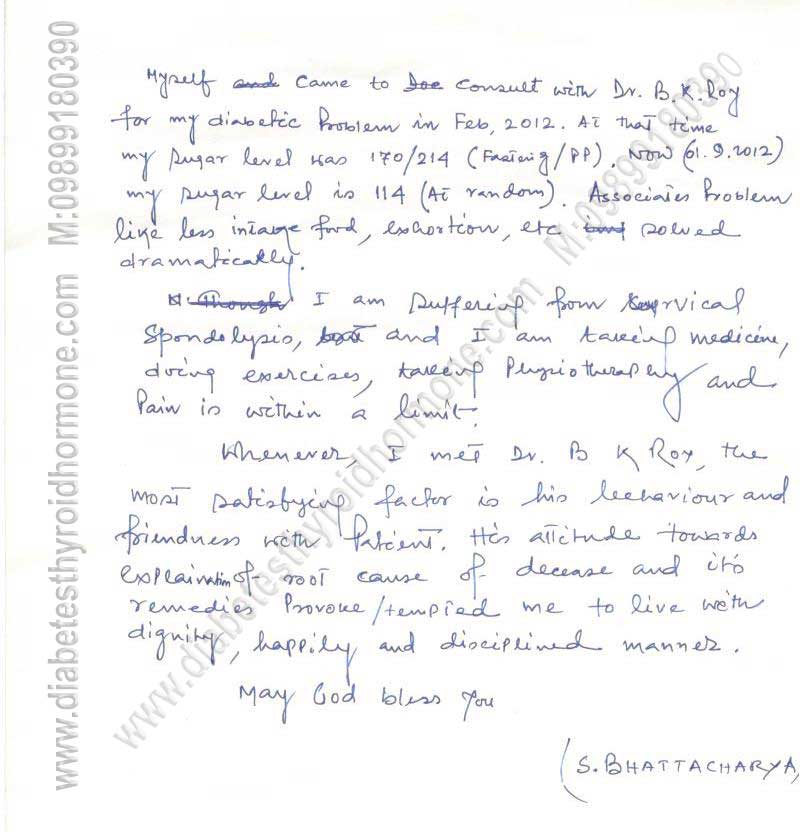 Myself and came to Doc consult with Dr. B.K. Roy
for my diabetic Problem in Feb, 2012. At that time
my sugar level was 170/214 (Fasting/PP). Now (01.9.2012)
my sugar level is 114 (At random). Associates Problem
like less intake food, exhortion, etc solved
dramatically.
Though I am suffering from servical
Spondolysis, but and I am taking medicine,
doing exercises, taking Physiotheraphy and
Pain is within a limit.
Whenever, I met Dr. B K Roy, the
most satisfying factor is his beehaviour and
friendness with Patient. His attitude towards
explaination of root cause of decease and it's
remedies Provoke/tempted me to live with
dignity, happily and disciplined manner.
May God bless you
(S. BHATTACHARYA,
www.diabetesthyroidhormone.com M:09899180390
www.diabetesthyroidhormone.com M:09899180390